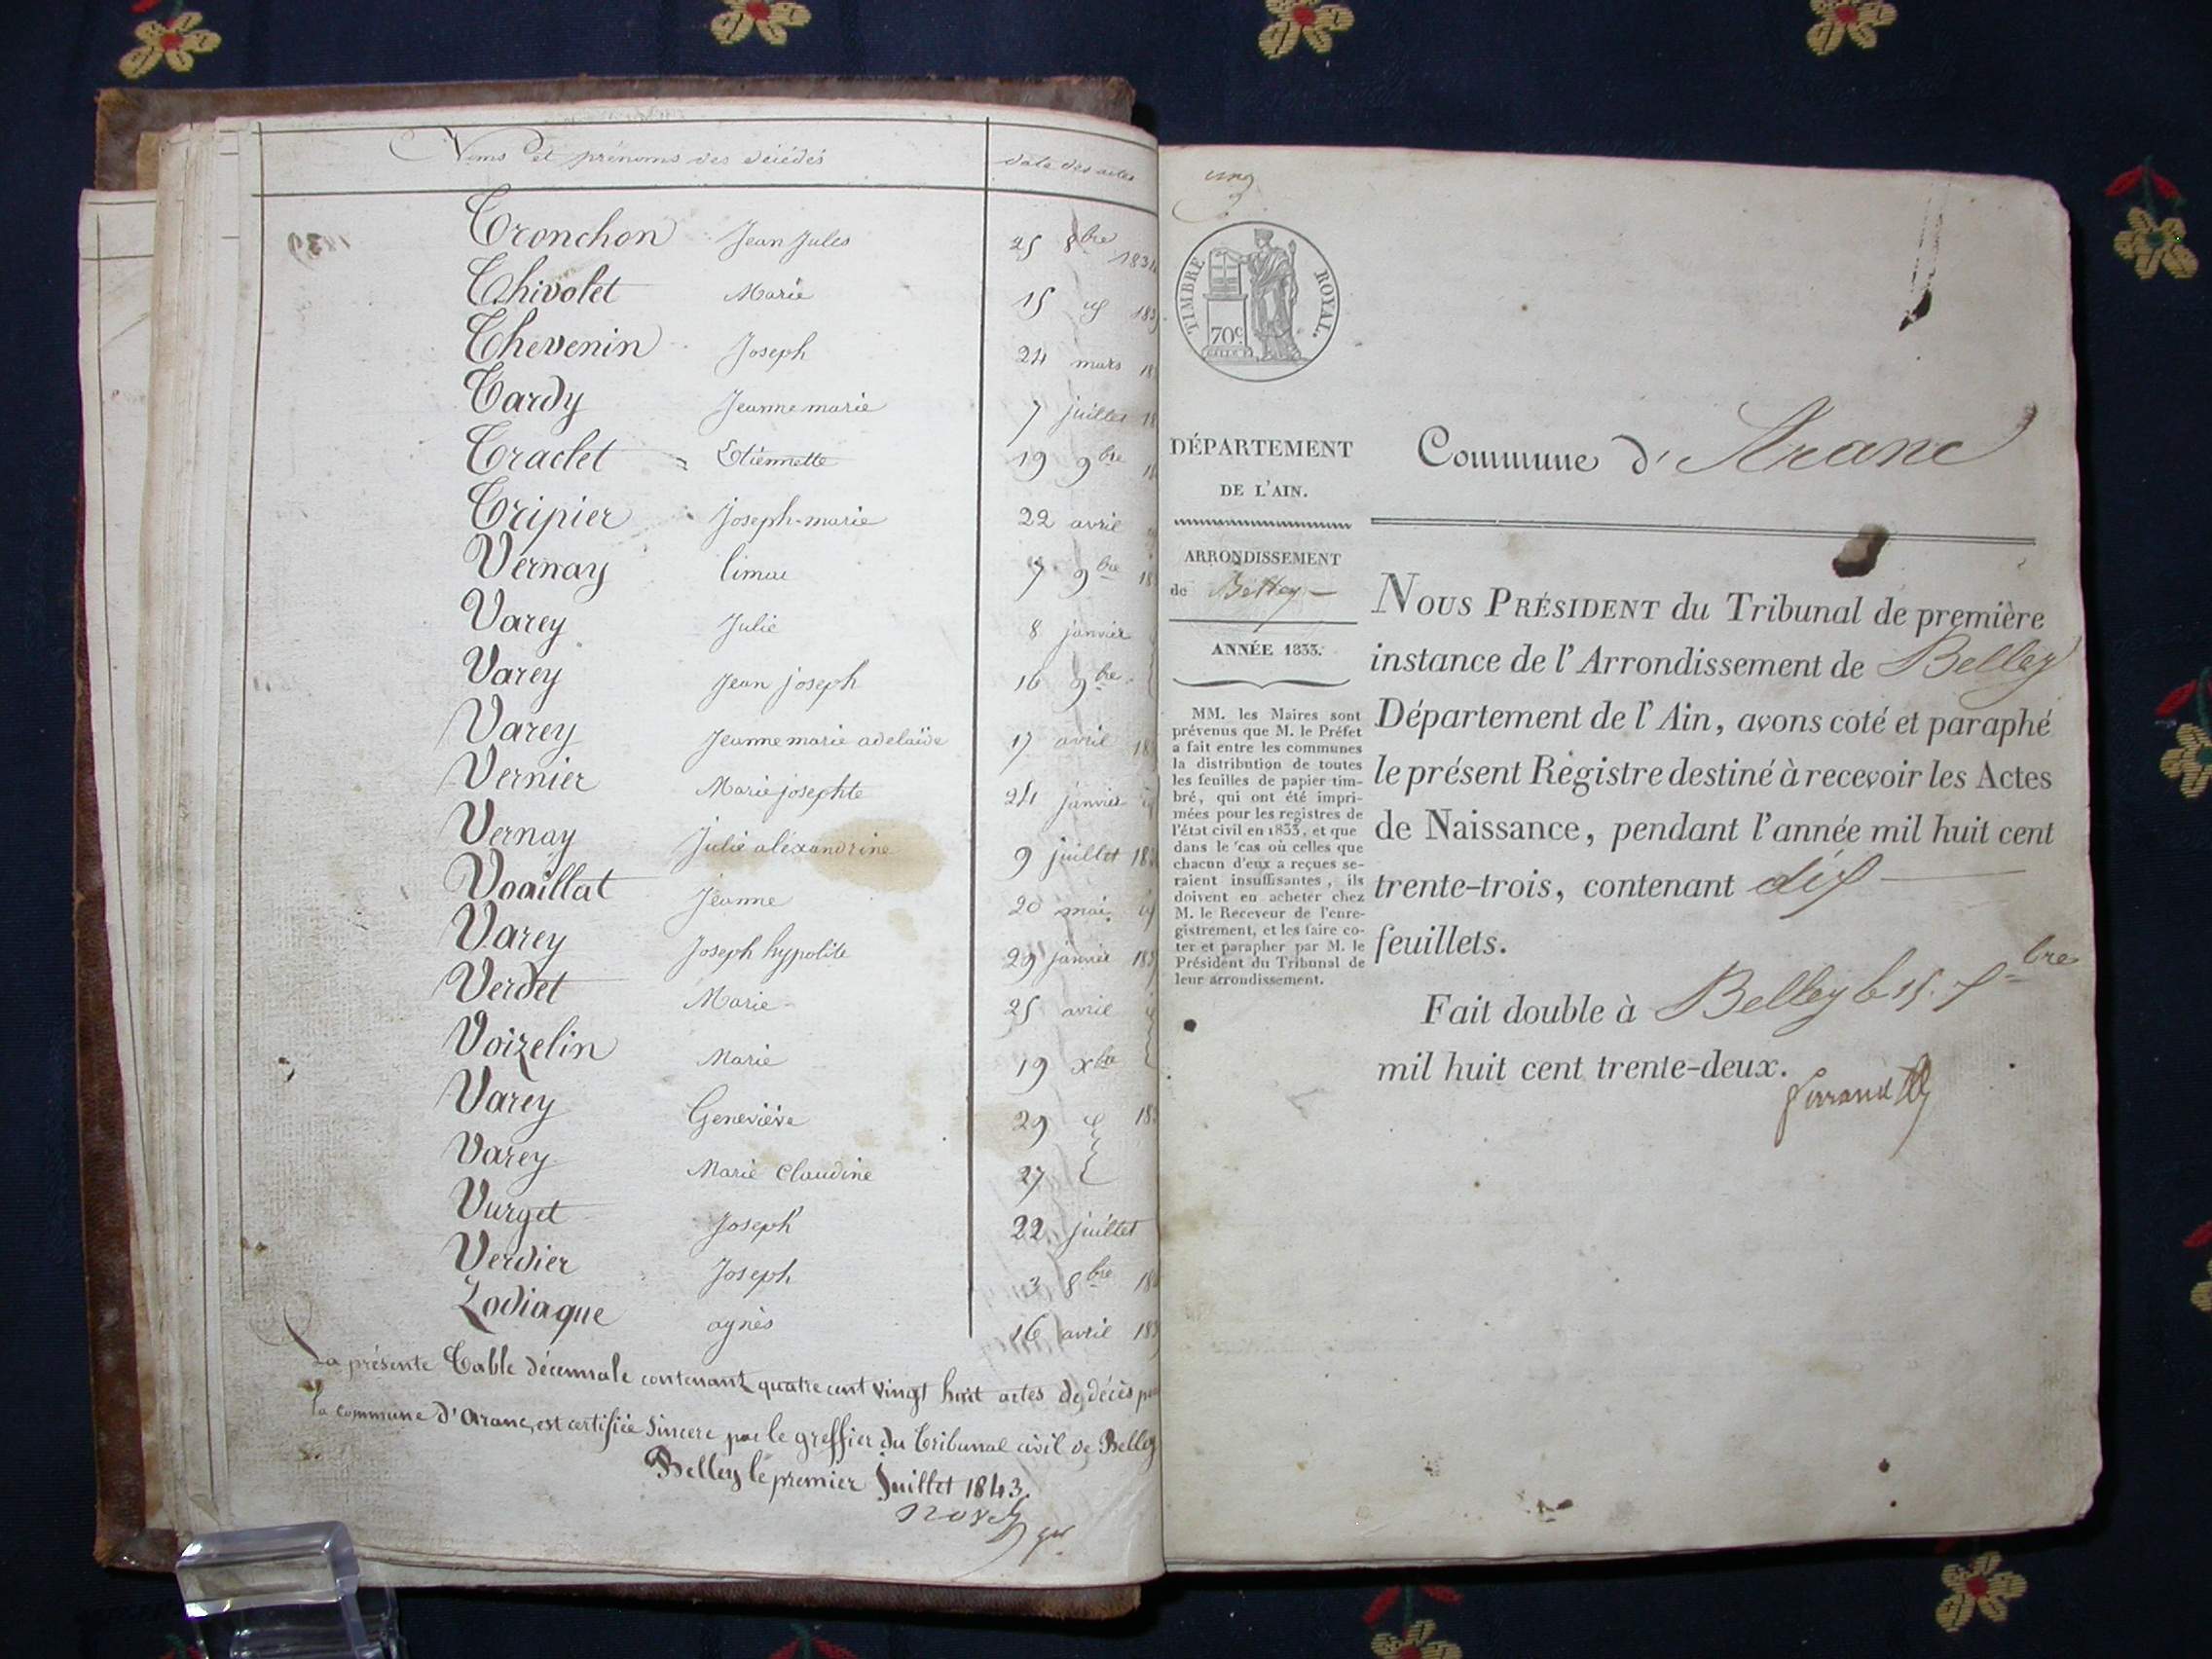 Noms et prénoms des décédés date des actes
Tronchon Jean Jules 25 8bre
Chivolet Marie 15
Thevenin Joseph 24 mars
Tardy Jeanne marie 7 juillet
Traclet Etiennette 19 9bre
Tripier Joseph-marie 22 avril
Vernay 7 9bre
Varey Julie 8 janvier
Varey Jean joseph 16 9bre
Varey Jeanne marie adelaïde 17 avril
Vernier Marie josephte 24 janvier
Vernay julie alexandrine 9 juillet
Vouillat Jeanne 20 mai
Varey Joseph hypolite 29 janvier
Verdet Marie 25 avril
Voizelin Marie 19 xbre
Varey Geneviève 29
Varey Marie Claudine 27
Vurget Joseph 22 juillet
Verdier Joseph 3 8bre
Zodiaque agnès 16 avril
La présente Table décennale contenant quatre cent vingt huit actes de décès
la commune d'Aranc, est certifiée sincere par le greffier du Tribunal civil de Belley
Belley le premier Juillet 1843.
TIMBRE ROYAL.
70c
DÉPARTEMENT
DE L'AIN.
ARRONDISSEMENT
de Belley
ANNÉE 1833.
MM. les Maires sont
prévenus que M. le Préfet
a fait entre les communes
la distribution de toutes
les feuilles de papier tim-
bré, qui ont été impri-
mées pour les registres de
l'état civil en 1833, et que
dans le cas où celles que
chacun d'eux a reçues se-
raient insuffisantes, ils
doivent en acheter chez
M. le Receveur de l'enre-
gistrement, et les faire co-
ter et parapher par M. le
Président du Tribunal de
leur arrondissement.
Commune d'Aranc
NOUS PRÉSIDENT du Tribunal de première
instance de l'Arrondissement de Belley
Département de l'Ain, avons coté et paraphé
le présent Registre destiné à recevoir les Actes
de Naissance, pendant l'année mil huit cent
trente-trois, contenant dix
feuillets.
Fait double à Belley le 15. bre
mil huit cent trente-deux.